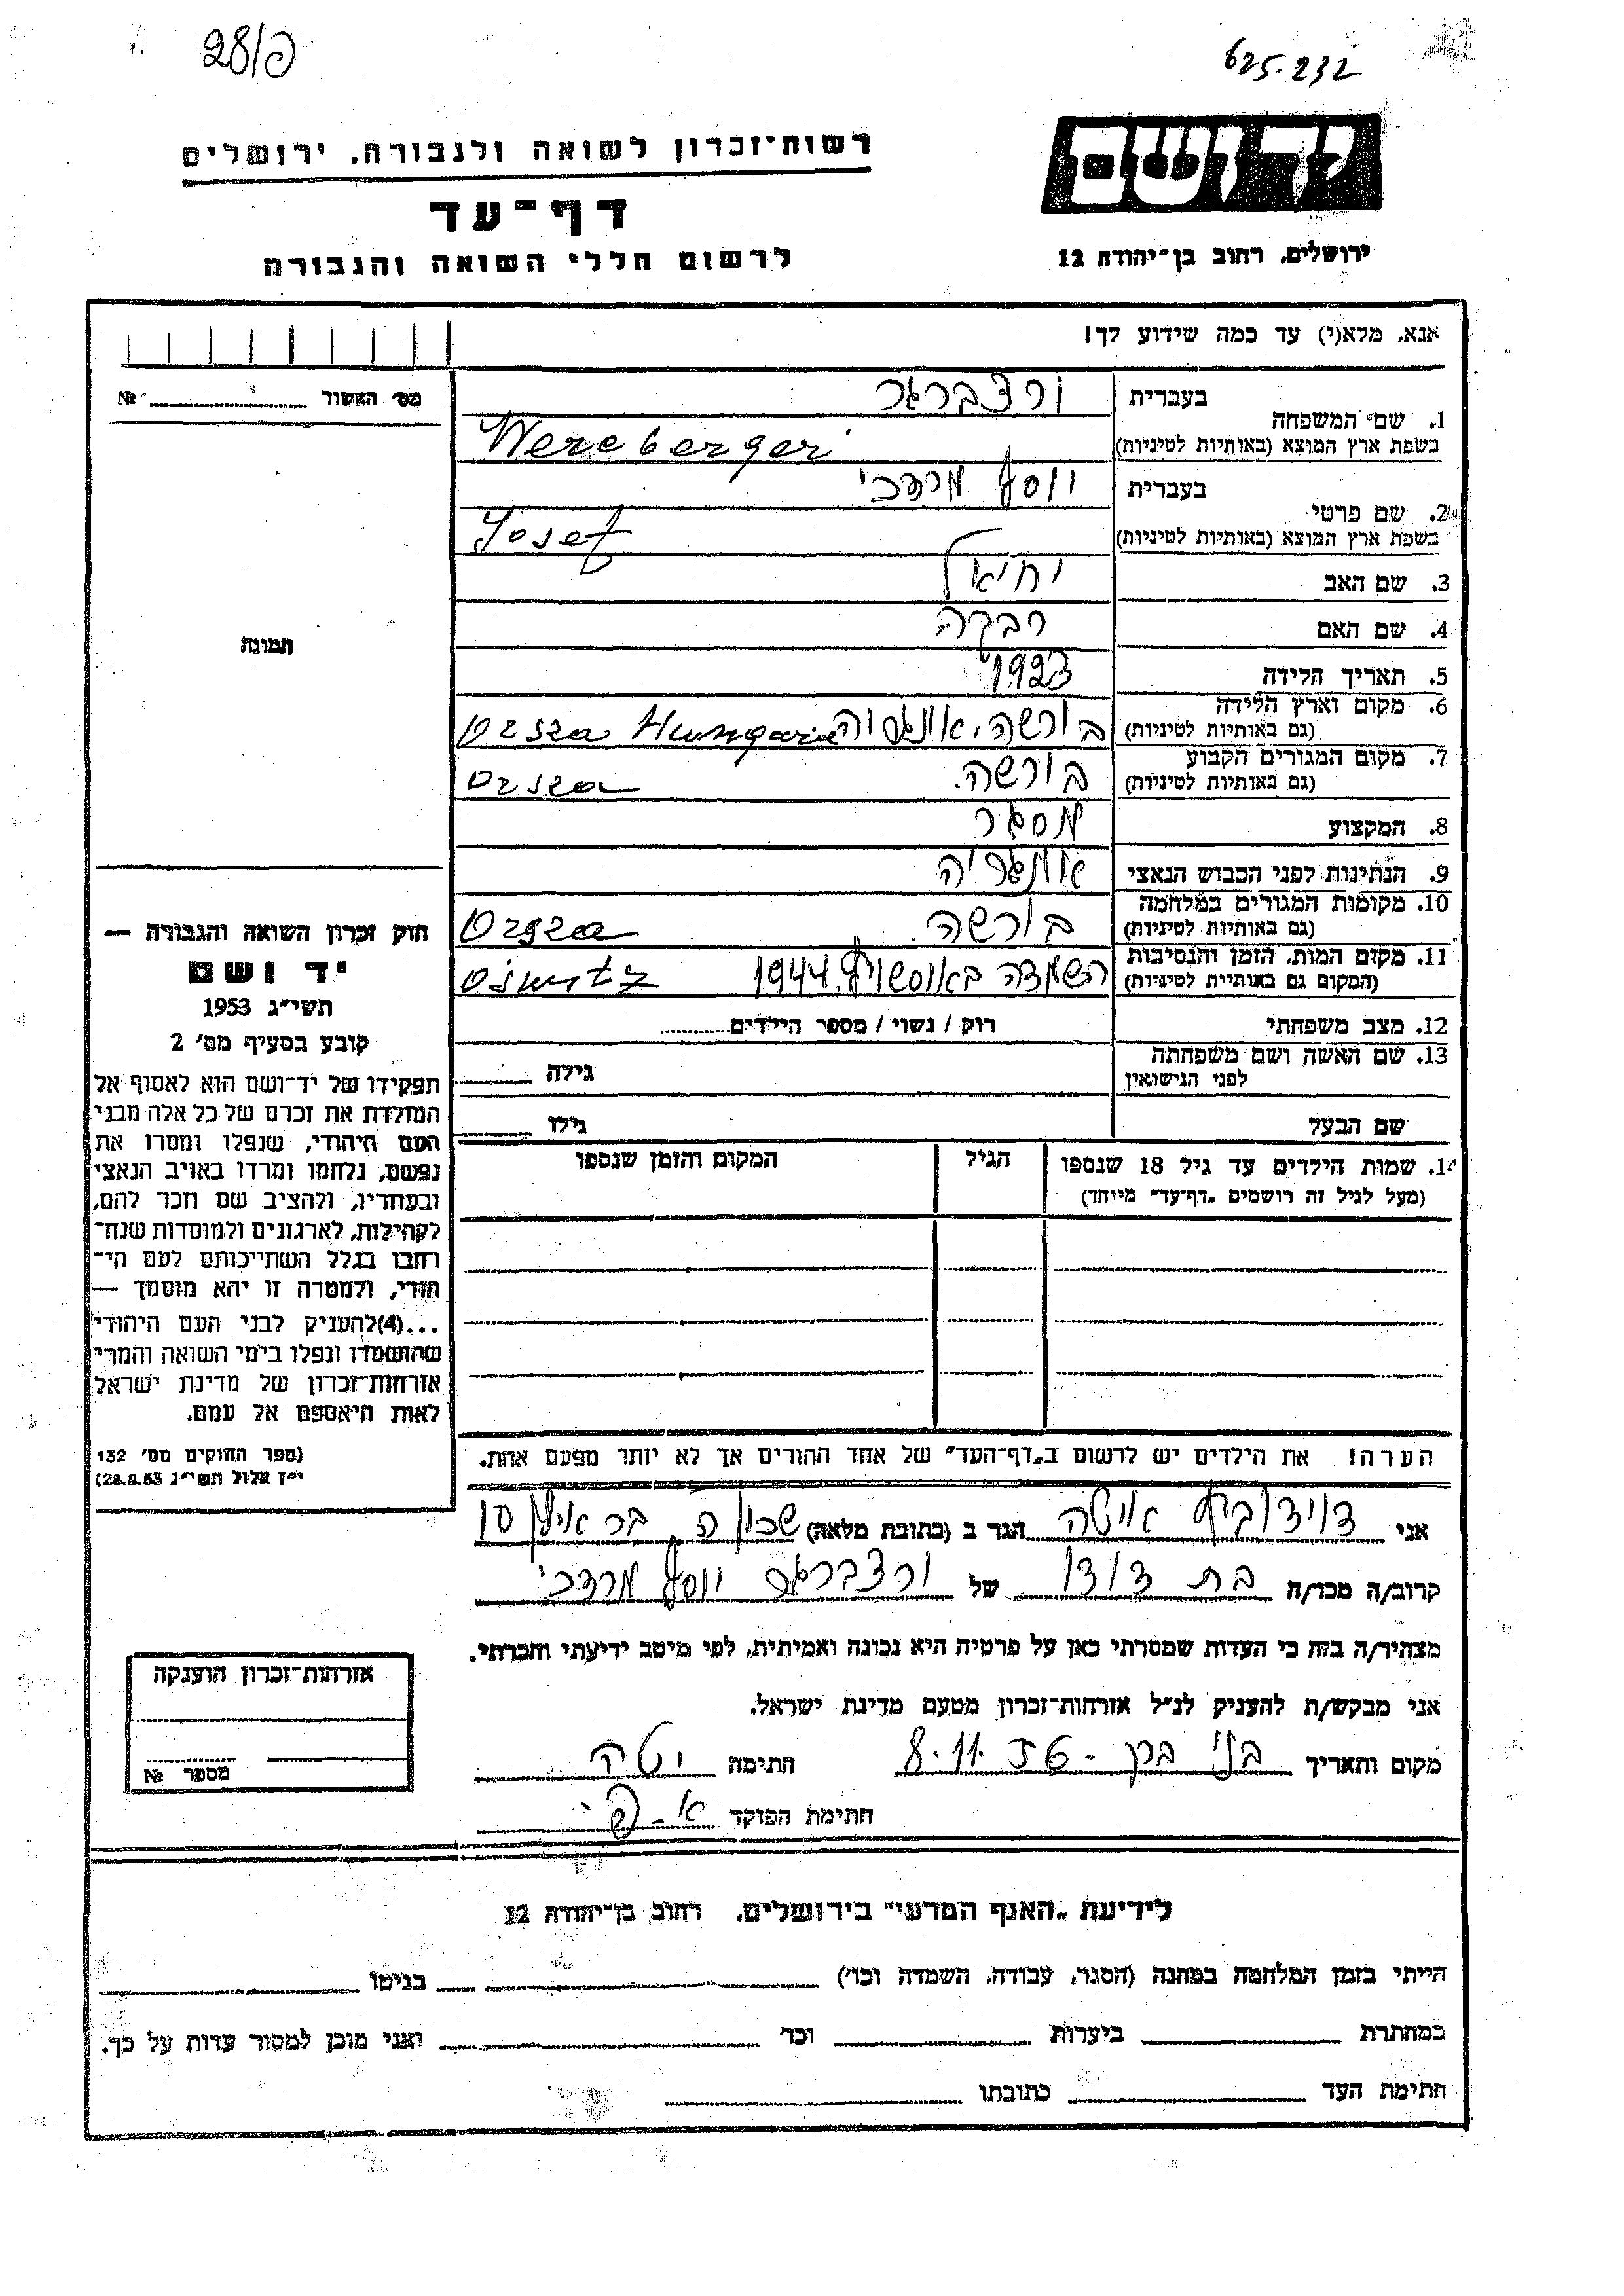 28/פ
625.232
יד ושם
רשות־זכרון לשואה ולגבורה, ירושלים
דף־עד
לרשום חללי השואה והגבורה
ירושלים, רחוב בן־יהודה 12
אנא, מלא(י) עד כמה שידוע לך!
מס׳ האשור № ........
1. שם המשפחה בעברית ורצברגר
בשפת ארץ המוצא (באותיות לטיניות) Wereberger
2. שם פרטי בעברית יוסף מרדכי
בשפת ארץ המוצא (באותיות לטיניות) Josef
3. שם האב יחיאל
4. שם האם רבקה
5. תאריך הלידה 1923
6. מקום וארץ הלידה (גם באותיות לטיניות) בורשה, אונגריה Orsza Hungaria
7. מקום המגורים הקבוע (גם באותיות לטיניות) בורשה. Orsza
8. המקצוע מסגר
9. הנתינות לפני הכבוש הנאצי אונגריה
10. מקומות המגורים במלחמה (גם באותיות לטיניות) בורשה. Orsza
11. מקום המות, הזמן והנסיבות (המקום גם באותיות לטיניות) השמדה באושויץ. 1944 Oswitz
12. מצב משפחתי רוק / נשוי / מספר הילדים........
13. שם האשה ושם משפחתה לפני הנישואין גילה
שם הבעל גילו
14. שמות הילדים עד גיל 18 שנספו (מעל לגיל זה רושמים „דף־עד״ מיוחד) הגיל המקום והזמן שנספו
תמונה
חוק זכרון השואה והגבורה —
יד ושם
תשי״ג 1953
קובע בסעיף מס׳ 2
תפקידו של יד־ושם הוא לאסוף אל
המולדת את זכרם של כל אלה מבני
העם היהודי, שנפלו ומסרו את
נפשם, נלחמו ומרדו באויב הנאצי
ובעוזריו, ולהציב שם וזכר להם,
לקהילות, לארגונים ולמוסדות שנח־
רבו בגלל השתייכותם לעם הי־
הודי, ולמטרה זו יהא מוסמך —
...(4)להעניק לבני העם היהודי
שהושמדו ונפלו בימי השואה והמרי
אזרחות־זכרון של מדינת ישראל
לאות היאספם אל עמם.
(ספר החוקים מס׳ 132
י״ז אלול תשי״ג 28.8.53)
הערה! את הילדים יש לרשום ב„דף־העד״ של אחד ההורים אך לא יותר מפעם אחת.
אני דוידוביץ איטה הגר ב (כתובת מלאה) שכון ה. בר אילן 10
קרוב/ה מכר/ה בת דודו של ורצברגר יוסף מרדכי
מצהיר/ה בזה כי העדות שמסרתי כאן על פרטיה היא נכונה ואמיתית, לפי מיטב ידיעתי והכרתי.
אני מבקש/ת להעניק לנ״ל אזרחות־זכרון מטעם מדינת ישראל.
מקום ותאריך בני ברק - 8.11. חתימה יטה
חתימת הפוקד
אזרחות־זכרון הוענקה
מספר №
לידיעת „האגף המדעי״ בירושלים, רחוב בן־יהודה 12
הייתי בזמן המלחמה במחנה (הסגר, עבודה, השמדה וכו׳) בגיטו
במחתרת ביערות וכו׳ ואני מוכן למסור עדות על כך.
חתימת העד כתובתו